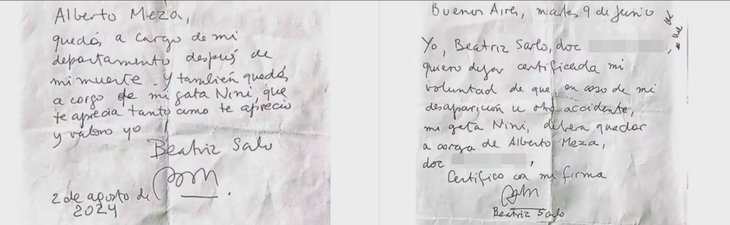 Alberto Meza,
quedás a cargo de mi
departamento después de
mi muerte. Y también quedás
a cargo de mi gata Nini, que
te aprecia tanto como te aprecio
y valoro yo
Beatriz Sarlo
2 de agosto de
2024
Buenos Aires, martes 9 de Junio
Yo, Beatriz Sarlo, doc
quiero dejar certificada mi
voluntad de que, en caso de mi
desaparición u otro accidente,
mi gata Nini, deberá quedar
a cargo de Alberto Meza,
doc ,
Certifico con mi firma
Beatriz Sarlo